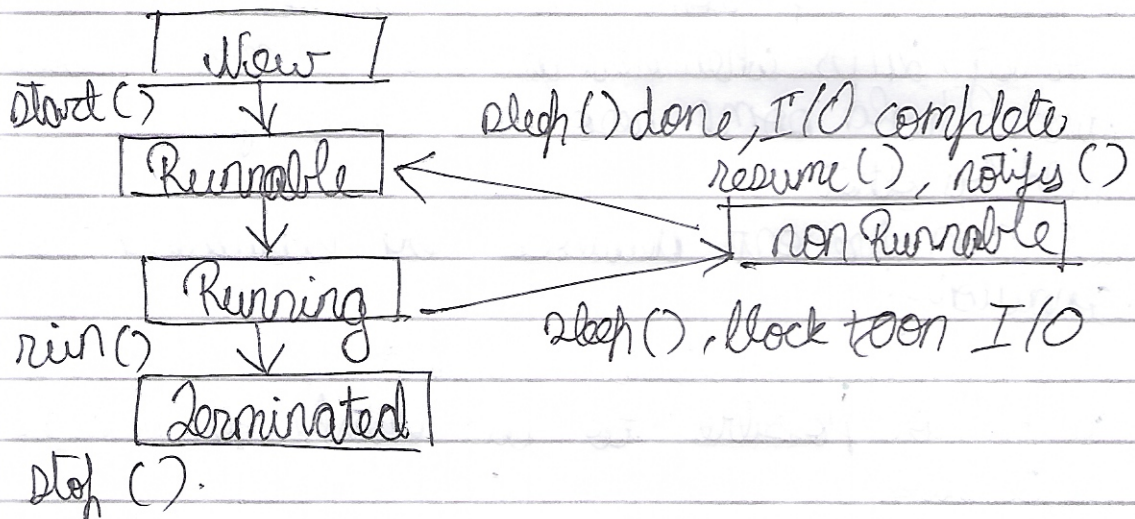 New
start()
sleep() done, I/O complete
Runnable
resume(), notify()
non Runnable
Running
sleep(), block on I/O
run()
Terminated
stop().